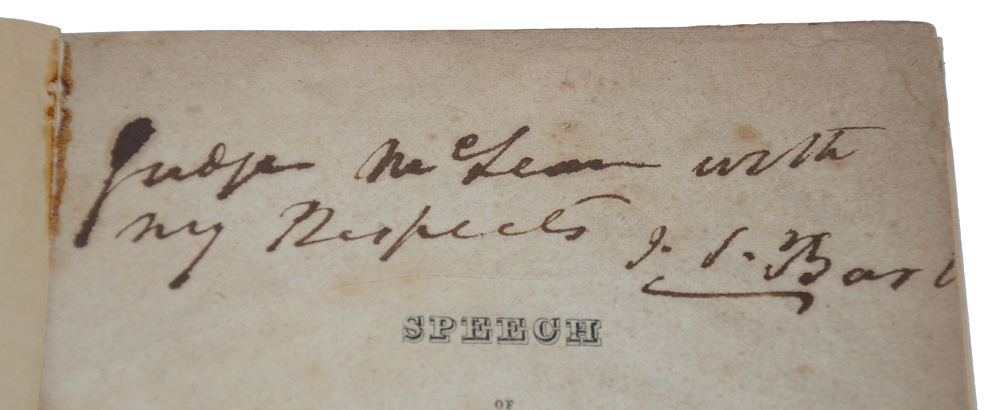 Judge McLean with
my Respects J. S. Bar
SPEECH
OF